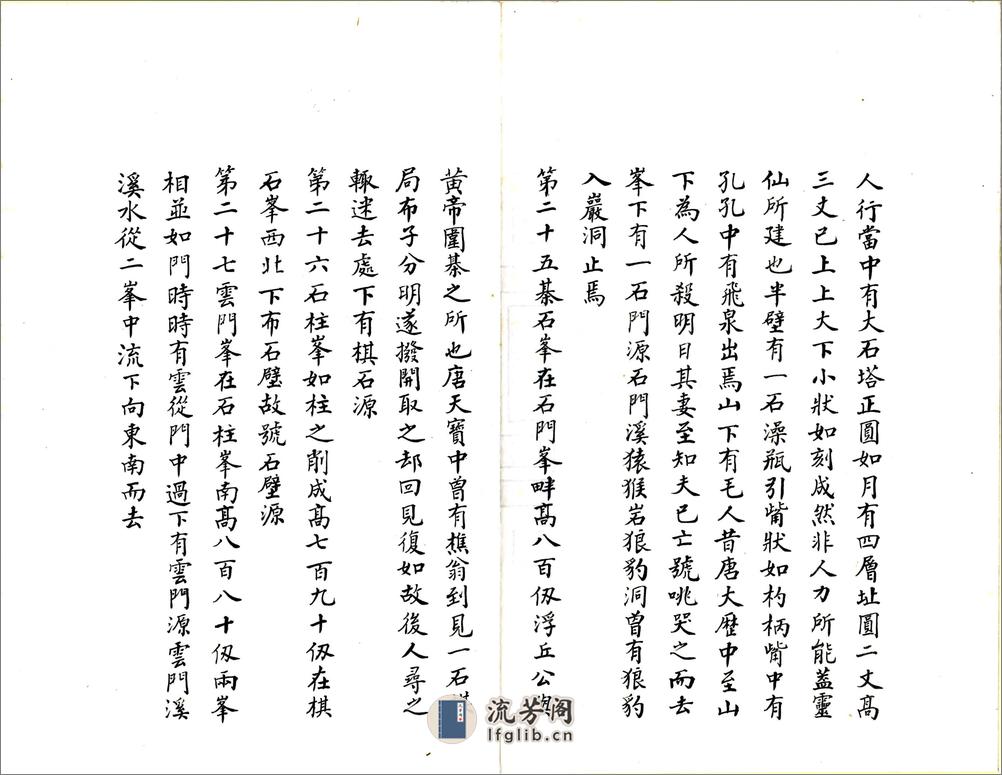 人行當中有大石塔正圓如月有四層址圓二丈高
三丈已上上大下小狀如刻成然非人力所能蓋靈
仙所建也半壁有一石澡瓶引觜狀如杓柄觜中有
孔孔中有飛泉出焉山下有毛人昔唐大歷中至山
下為人所殺明日其妻至知夫已亡號咷哭之而去
峯下有一石門源石門溪猿猴岩狼豹洞曾有狼豹
入巖洞止焉
第二十五棊石峯在石門峯畔高八百仭浮丘公與
黄帝圍棊之所也唐天寶中曾有樵翁到見一石棋
局布子分明遂撥開取之却回見復如故後人尋之
輙迷去處下有棋石源
第二十六石柱峯如柱之削成高七百九十仭在棋
石峯西北下布石壁故號石壁源
第二十七雲門峯在石柱峯南高八百八十仭兩峯
相並如門時時有雲從門中過下有雲門源雲門溪
溪水從二峯中流下向東南而去
流芳阁
lfglib.cn